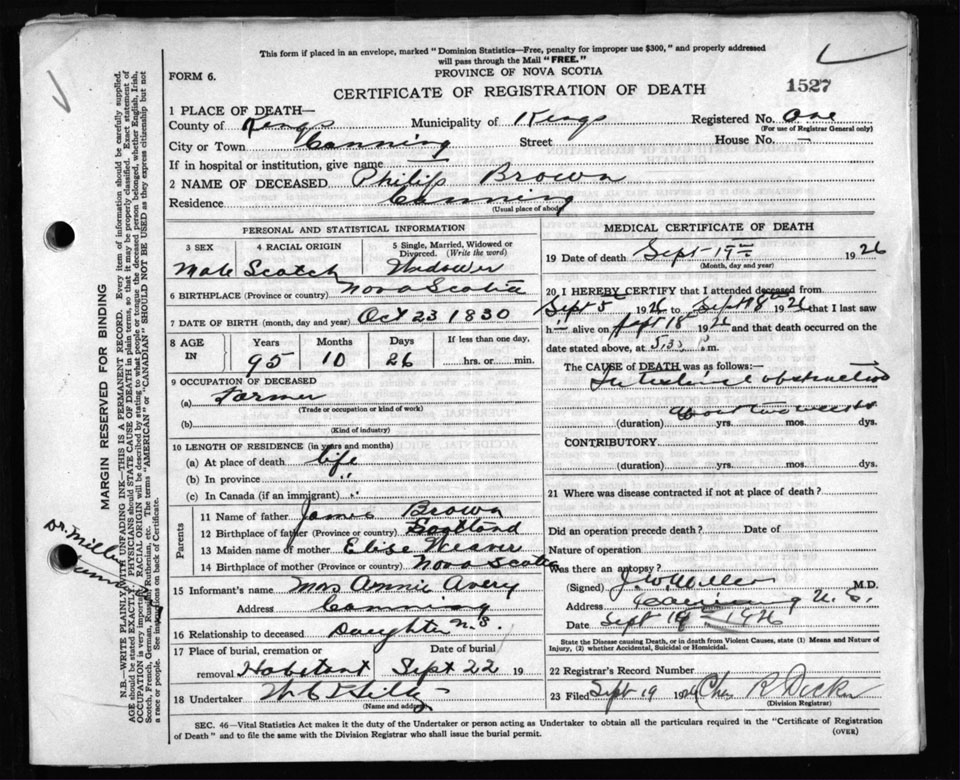 This form if placed in an envelope, marked "Dominion Statistics—Free, penalty for improper use $300," and properly addressed
will pass through the Mail "FREE."
FORM 6.
PROVINCE OF NOVA SCOTIA
CERTIFICATE OF REGISTRATION OF DEATH
1527
1 PLACE OF DEATH—
County of Kings Municipality of Kings Registered No. One
(For use of Registrar General only)
City or Town Canning Street House No. —
If in hospital or institution, give name —
2 NAME OF DECEASED Philip Brown
Residence Canning
(Usual place of abode)
PERSONAL AND STATISTICAL INFORMATION
3 SEX 4 RACIAL ORIGIN 5 Single, Married, Widowed or Divorced. (Write the word)
Male Scotch Widower
6 BIRTHPLACE (Province or country) Nova Scotia
7 DATE OF BIRTH (month, day and year) Oct 23 1830
8 AGE IN Years Months Days If less than one day,
95 10 26 hrs. or min.
9 OCCUPATION OF DECEASED
(a) Farmer
(Trade or occupation or kind of work)
(b)
(Kind of industry)
10 LENGTH OF RESIDENCE (in years and months)
(a) At place of death life
(b) In province "
(c) In Canada (if an immigrant) "
Parents
11 Name of father James Brown
12 Birthplace of father (Province or country) Scotland
13 Maiden name of mother Elise Weaver
14 Birthplace of mother (Province or country) Nova Scotia
15 Informant's name Mrs Annie Avery
Address Canning N.S.
16 Relationship to deceased Daughter
17 Place of burial, cremation or Date of burial
removal Sept 22 19
18 Undertaker
(Name and address)
MEDICAL CERTIFICATE OF DEATH
19 Date of death Sept 19th 1926
(Month, day and year)
20 I HEREBY CERTIFY that I attended deceased from
Sept 5 1926 to Sept 18th 1926 that I last saw
h im alive on Sept 18 1926 and that death occurred on
date stated above, at 5.30 P.m.
The CAUSE of DEATH was as follows:—
Intestinal obstruction
about two weeks
(duration) yrs. mos. dys.
CONTRIBUTORY
(duration) yrs. mos. dys.
21 Where was disease contracted if not at place of death?
Did an operation precede death? Date of
Nature of operation
Was there an autopsy?
(Signed) J. W. Miller M.D.
Address Canning N.S.
Date Sept 19 1926
State the Disease causing Death, or in death from Violent Causes, state (1) Means and Nature of
Injury, (2) whether Accidental, Suicidal or Homicidal.
22 Registrar's Record Number
23 Filed Sept 19 1926 Chas R Dickie
(Division Registrar)
SEC. 46—Vital Statistics Act makes it the duty of the Undertaker or person acting as Undertaker to obtain all the particulars required in the "Certificate of Registration
of Death" and to file the same with the Division Registrar who shall issue the burial permit.
(OVER)
MARGIN RESERVED FOR BINDING
N.B.—WRITE PLAINLY, WITH UNFADING INK—THIS IS A PERMANENT RECORD. Every item of information should be carefully supplied.
AGE should be stated EXACTLY. PHYSICIANS should STATE CAUSE OF DEATH in plain terms, so that it may be properly classified. Exact statement of
OCCUPATION is very important. RACIAL ORIGIN will be described by stating to what people or tongue the deceased person belonged, whether English, Irish,
Scotch, French, German, Russian, Ruthenian, etc. The terms "AMERICAN" or "CANADIAN" SHOULD NOT BE USED as they express citizenship but not
a race or people. See instructions on back of Certificate.
Dr. Miller